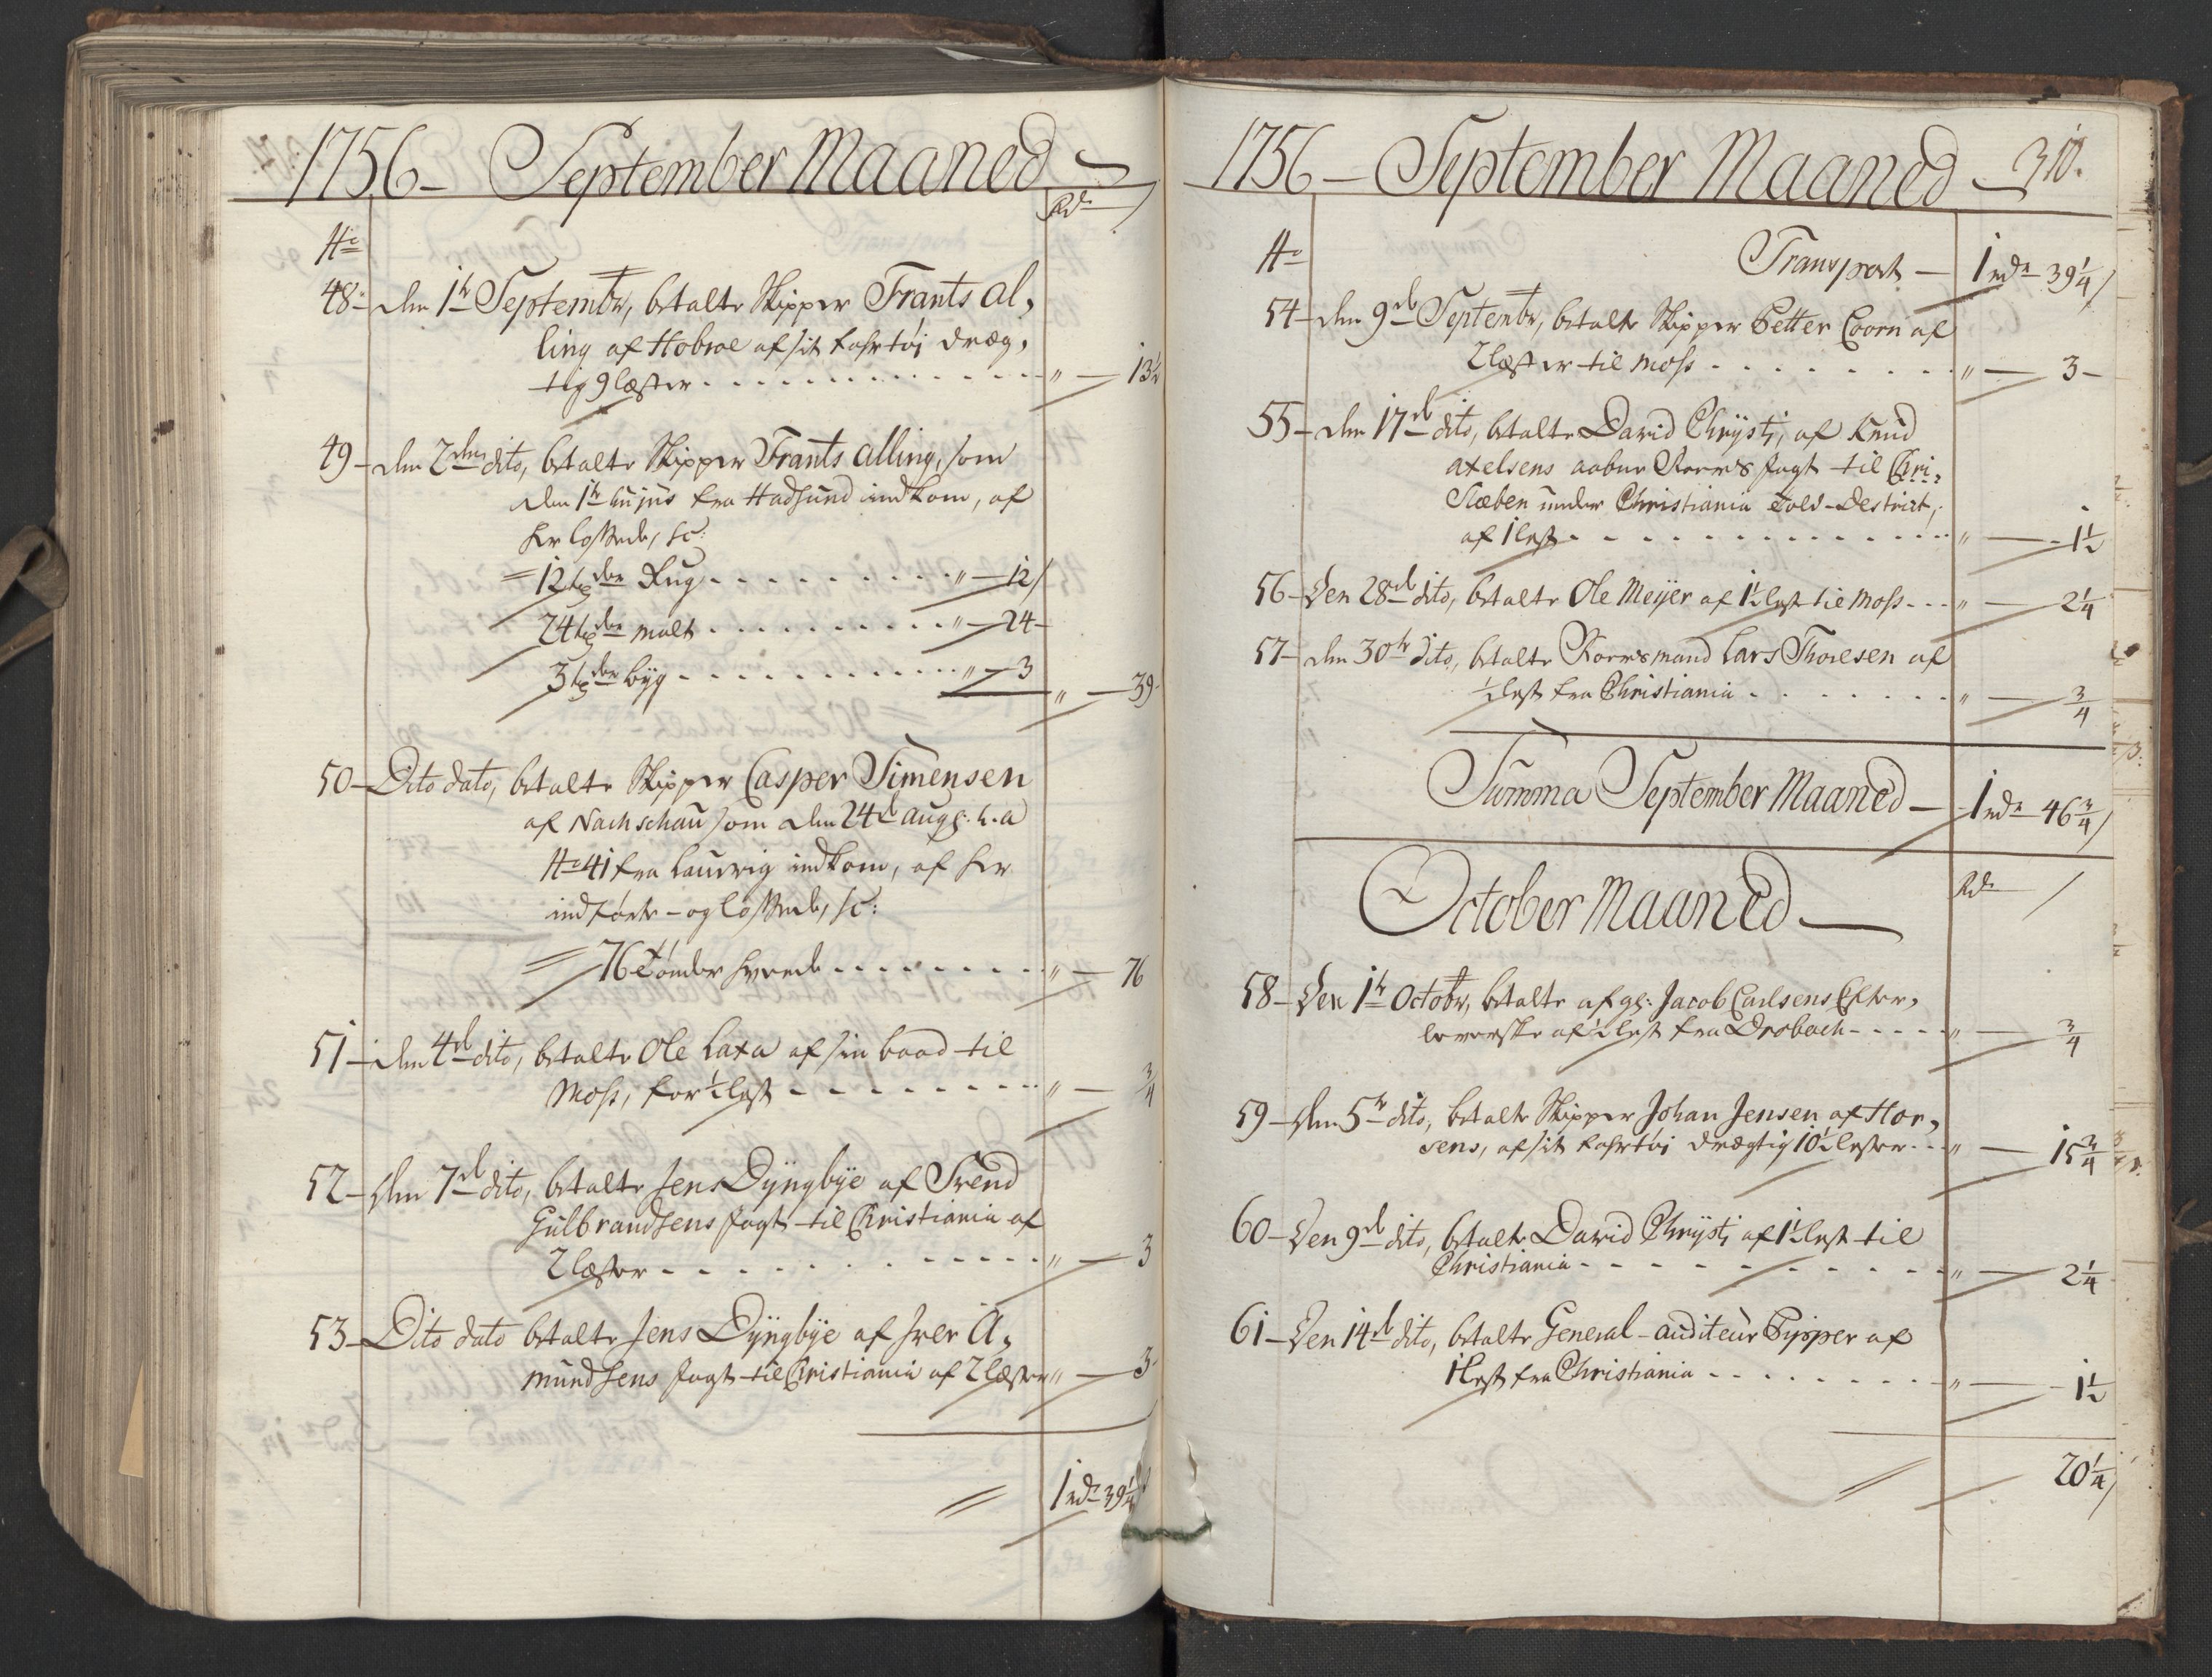 1756 – September Maaned
Rd.
No
48 – den 1te Septembr, betalte Skipper Frants Al,
ling af Hobroe af sit Fahrtøi dræg,
tig 9 læster . . . . . . . . . . . " – 13½
49 – den 2den dito, betalte Skipper Frants Alling, som
den 1te hujus fra Hadsund indkom, af
her lossede, sc:
12 dr Rug . . . . . . . . . " – 12
24 dr malt . . . . . . . . . " – 24 –
3 dr byg . . . . . . . . . . . " – 3
" – 39
50 – Dito dato, betalte Skipper Casper Simensen
af Nachschau som den 24d Aug: h.a
No 41 fra Laurvig indkom, af her
indførte – og lossede, sc:
76 Tønder hvede . . . . . . . . . " – 76
51 – den 4d dito, betalte Ole Laxa af sin baad til
Moss, for ½ lest . . . . . . . . . " – ¾
52 – den 7d dito, betalte Jens Dyngbye af Svend
Gulbrandsens Jagt til Christiania af
2 læster . . . . . . . . . . . " – 3
53 – Dito dato betalte Jens Dyngbye af Iver A,
mundsens Jagt til Christiania af 2 læster " – 3
1 rdr 39¼
1756 – September Maaned – 310.
No
Transport – 1 rdr 39¼
54 – den 9d Septembr, betalte Skipper Petter Coorn af
2 læster til Moss . . . . . . . . " – 3 –
55 – den 17d dito, betalte David Chrysti, af Knud
Axelsens aabne Roers Jagt til Chri,
Slæben under Christiania Told-Destrict,
af 1 lest . . . . . . . . . . . . " – 1½
56 – Den 28d dito, betalte Ole Meyer af 1½ lest til Moss . . . " – 2¼
57 – den 30te dito, betalte Roersmand Lars Thoresen af
½ lest fra Christiania . . . . . . . " – ¾
Summa September Maaned – 1 rdr 46¾
October Maaned
Rdr
58 – Den 1te Octobr, betalte afg: Jacob Carlsens Efter,
leverske af ½ lest fra Drobach . . . . . " – ¾
59 – den 5te dito, betalte Skipper Johan Jensen af Hor,
sens, af sit Fahrtøi drægtig 10½ lester . . . " – 15¾
60 – Den 9d dito, betalte David Chrysti af 1½ lest til
Christiania . . . . . . . . . . . " – 2¼
61 – Den 14d dito, betalte General-Auditeur Pipper af
1 lest fra Christiania . . . . . . . . " – 1½
20¼